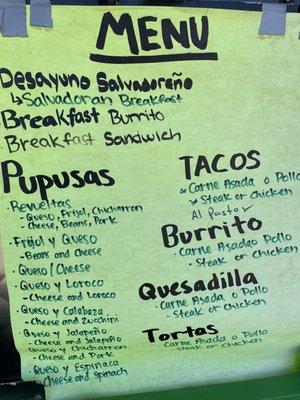 MENU
Desayuno Salvadoreño
Salvadoran Breakfast
Breakfast Burrito
Breakfast Sandwich
Pupusas
· Revueltas
- Queso, Frijol, Chicharron
- Cheese, Beans, Pork
· Frijol y Queso
- Beans and Cheese
· Queso/Cheese
· Queso y Loroco
- Cheese and Loroco
· Queso y Calabaza
- Cheese and Zucchini
· Queso y Jalapeño
- Cheese and Jalapeño
· Queso y Chicharron
- Cheese and Pork
· Queso y Espinaca
- Cheese and Spinach
TACOS
Carne Asada o Pollo
Steak or Chicken
Al Pastor
Burrito
· Carne Asada o Pollo
- Steak or Chicken
Quesadilla
· Carne Asada o Pollo
- Steak or Chicken
Tortas
Carne Asada o Pollo
- Steak or Chicken